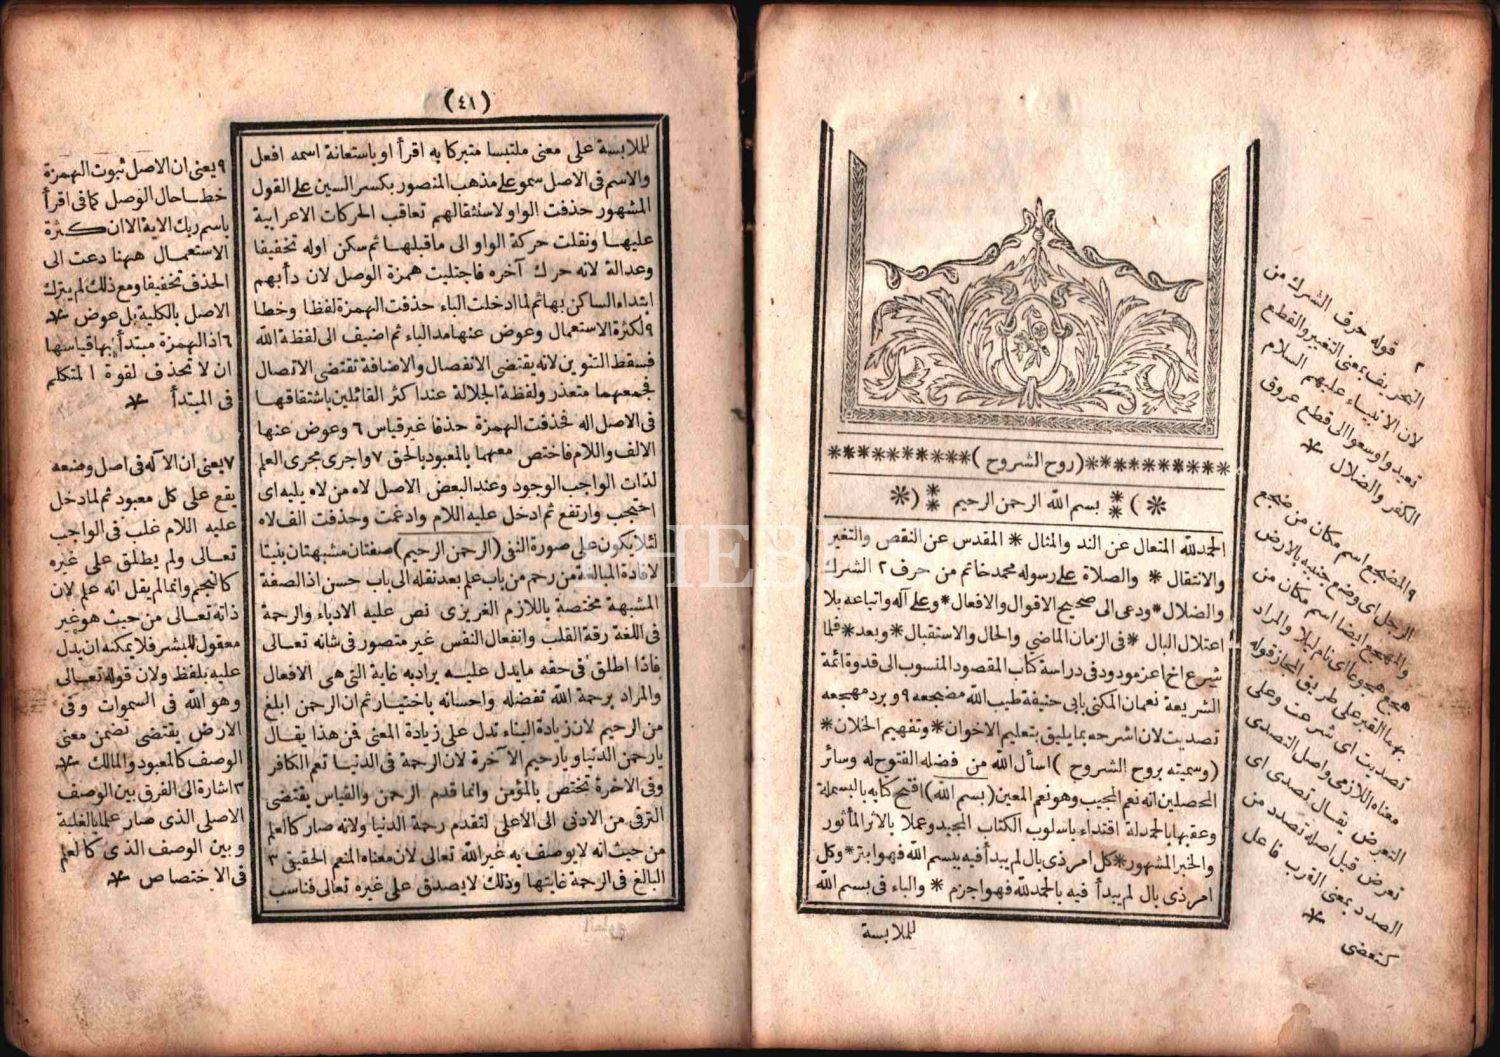 **********(روح الشروح)**********
* ) * بسم الله الرحمن الرحيم * ( *
الحمد لله المتعال عن الند والمثال * المقدس عن النقص والتغير
والانتقال * والصلاة على رسوله محمد خاتم من حرف ٢ الشرك
والضلال * ودعى الى صحيح الاقوال والافعال * وعلى آله واتباعه بلا
اعتلال البال * فى الزمان الماضي والحال والاستقبال * وبعد * فلما
شرع اخ اعز مودود فى دراسة كتاب المقصود المنسوب الى قدوة ائمة
الشريعة نعمان المكنى بابى حنيفة طيب الله مضجعه ٩ وبرد مهجعه
تصديت لان اشرحه بما يليق بتعليم الاخوان * وتفهيم الخلان *
(وسميته بروح الشروح) اسأل الله من فضله الفتوح له وسائر
المحصلين انه نعم المجيب وهو نعم المعين (بسم الله) افتح كتابه بالبسملة
وعقبها بالحمدلة اقتداء باسلوب الكتاب المجيد وعملا بالاثر المأثور
والخبر المشهور * كل امر ذى بال لم يبدأ فيه ببسم الله فهو ابتر * وكل
امر ذى بال لم يبدأ فيه بالحمد لله فهو اجزم * والباء فى بسم الله
للملابسة
٢ قوله حرف الشرك من
التحريف بمعنى التغيير والقطع
لان الانبياء عليهم السلام
تعبدوا وسعوا الى قطع عروق
الكفر والضلال *
٩ والمضجع اسم مكان من ضجع
الرجل اى وضع جنبه بالارض
والمهجع ايضا اسم مكان من
هجع هجوعا اى نام ليلا والمراد
بهما القبر على طريق المجاز قوله
تصديت اى شرعت وعلى
معناه اللازمى واصل التصدى
التعرض يقال تصدى اى
تعرض قيل اصله تصدد من
الصدد بمعنى القرب فاعل
كتقضى *
(٤١)
للملابسة على معنى ملتبسا متبركا به اقرأ او باستعانة اسمه افعل
والاسم فى الاصل سمو على مذهب المنصور بكسر السين على القول
المشهور حذفت الواو لاستثقالهم تعاقب الحركات الاعرابية
عليها ونقلت حركة الواو الى ما قبلها ثم سكن اوله تخفيفا
وعدالة لانه حرك آخره فاجتلبت همزة الوصل لان دأبهم
ابتداء الساكن بها ثم لما ادخلت الباء حذفت الهمزة لفظا وخطا
٩ لكثرة الاستعمال وعوض عنها مد الباء ثم اضيف الى لفظة الله
فسقط التنوين لانه يقتضى الانفصال والاضافة تقتضى الاتصال
فجمعهما متعذر ولفظة الجلالة عند اكثر القائلين باشتقاقها
فى الاصل اله فحذفت الهمزة حذفا غير قياس ٦ وعوض عنها
الالف واللام فاختص معهما بالمعبود بالحق ٧ واجرى مجرى العلم
لذات الواجب الوجود وعند البعض الاصل لاه من لاه يليه اى
احتجب وارتفع ثم ادخل عليه اللام وادغمت وحذفت الف لاه
لئلا يكون على صورة النفى (الرحمن الرحيم) صفتان مشبهتان بنيتا
لافادة المبالغة من رحم من باب علم بعد نقله الى باب حسن اذ الصفة
المشبهة مختصة باللازم الغريزى نص عليه الادباء والرحمة
فى اللغة رقة القلب وانفعال النفس غير متصور فى شانه تعالى
فاذا اطلق فى حقه ما يدل عليه يراد به غاية التى هى الافعال
والمراد برحمة الله تفضله واحسانه باختيار ثم ان الرحمن ابلغ
من الرحيم لان زيادة البناء تدل على زيادة المعنى فمن هذا يقال
يا رحمن الدنيا ويا رحيم الآخرة لان الرحمة فى الدنيا تعم الكافر
وفى الآخرة تختص بالمؤمن وانما قدم الرحمن والقياس يقتضى
الترقى من الادنى الى الاعلى لتقدم رحمة الدنيا ولانه صار كالعلم
من حيث انه لا يوصف به غير الله تعالى لان معناه المنعم الحقيقى ٣
البالغ فى الرحمة غايتها وذلك لا يصدق على غيره تعالى فناسب
٩ يعنى ان الاصل ثبوت الهمزة
خطا حال الوصل كما فى اقرأ
باسم ربك الاية الا ان كثرة
الاستعمال ههنا دعت الى
الحذف تخفيفا ومع ذلك لم يترك
الاصل بالكلية بل عوض *
٦ اذ الهمزة مبتدأ بها قياسها
ان لا تحذف لقوة المتكلم
فى المبتدأ *
٧ يعنى ان الاله فى اصل وضعه
يقع على كل معبود ثم لما دخل
عليه اللام غلب فى الواجب
تعالى ولم يطلق على غيره
كالنجم وانما لم يقل انه علم لان
ذاته تعالى من حيث هو غير
معقول للبشر فلا يمكنه ان يدل
عليه بلفظ ولان قوله تعالى
وهو الله فى السموات وفى
الارض يقتضى تضمن معنى
الوصف كالمعبود والمالك *
٣ اشارة الى الفرق بين الوصف
الاصلى الذى صار علما بالغلبة
وبين الوصف الذى كالعلم
فى الاختصاص *